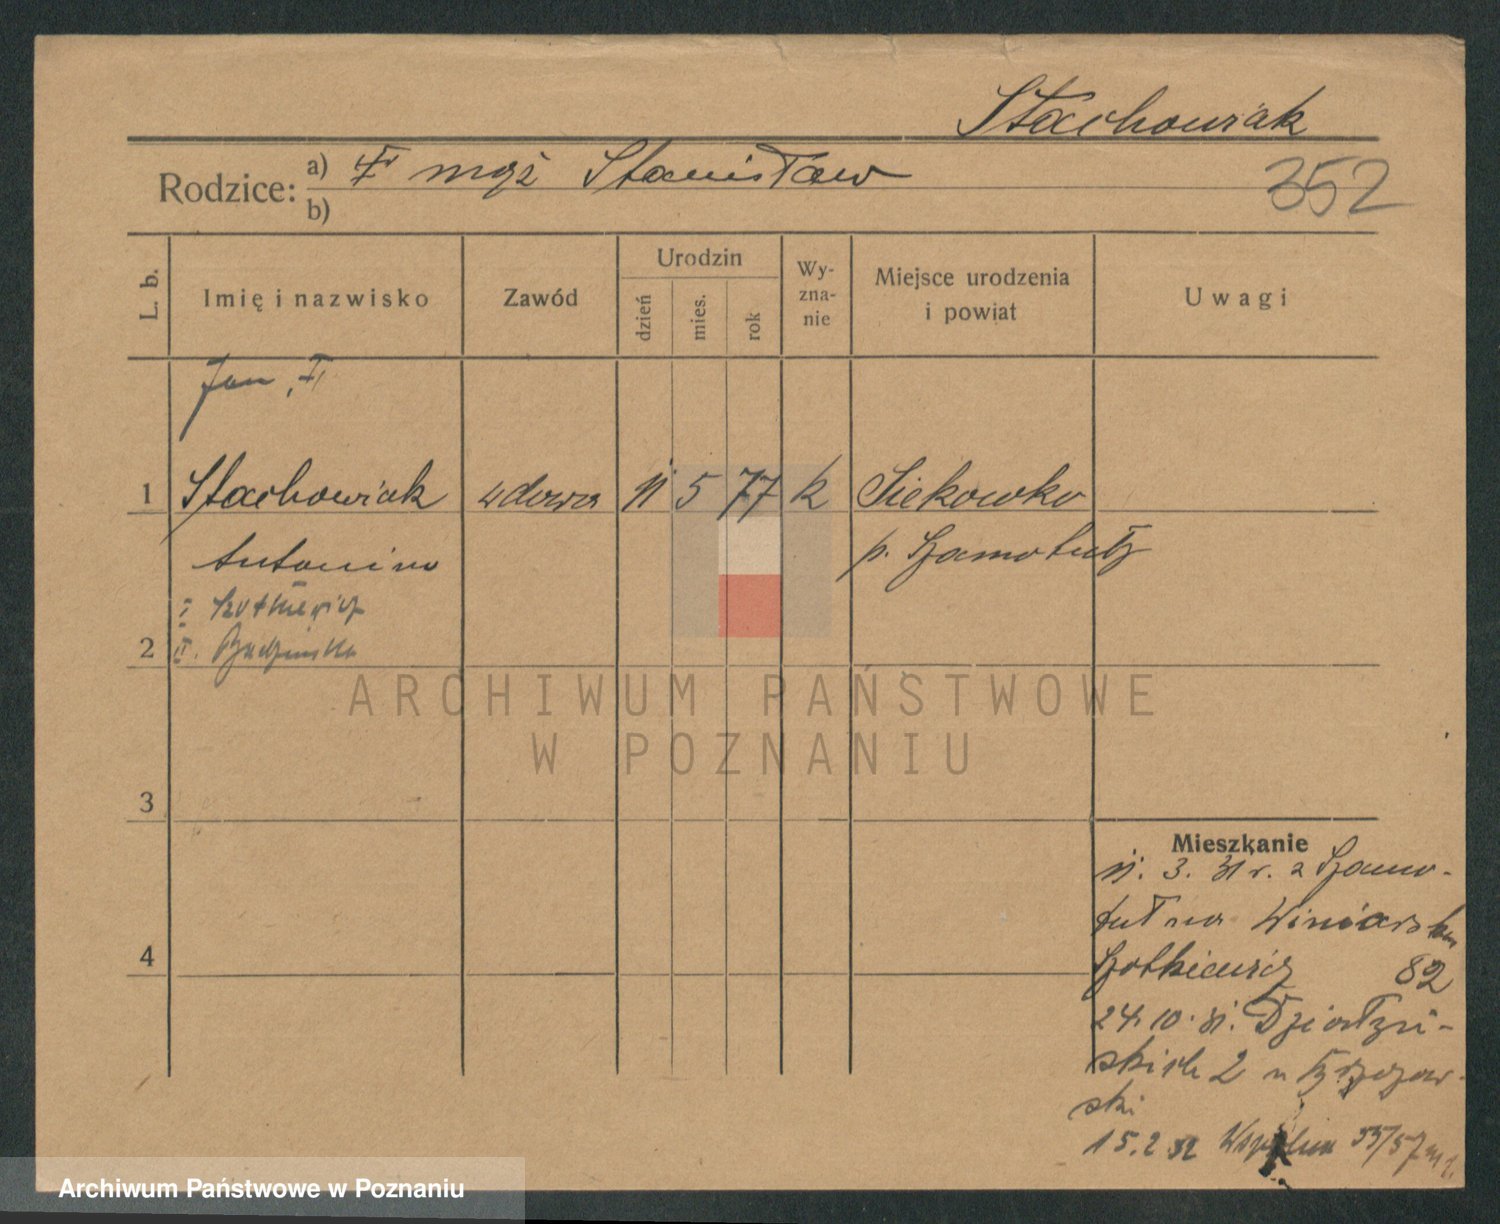 Stachowiak
Rodzice: a) mąż Stanisław
b)
352
L. b.
Imię i nazwisko
Zawód
Urodzin
dzień
mies.
rok
Wy-
zna-
nie
Miejsce urodzenia
i powiat
Uwagi
Jan, II
1 Stachowiak wdowa 11 5 77 k Siekowko
Antonina p. Szamotuły
I
2 II.
3
4
Mieszkanie
11. 3. 31 r. z Szamo-
tuł na Winiarska
Szotkiewicz 82
24. 10. 31. Działyń-
skich 2 u
ski
15. 2 32 55/57 m
ARCHIWUM PAŃSTWOWE
W POZNANIU
Archiwum Państwowe w Poznaniu